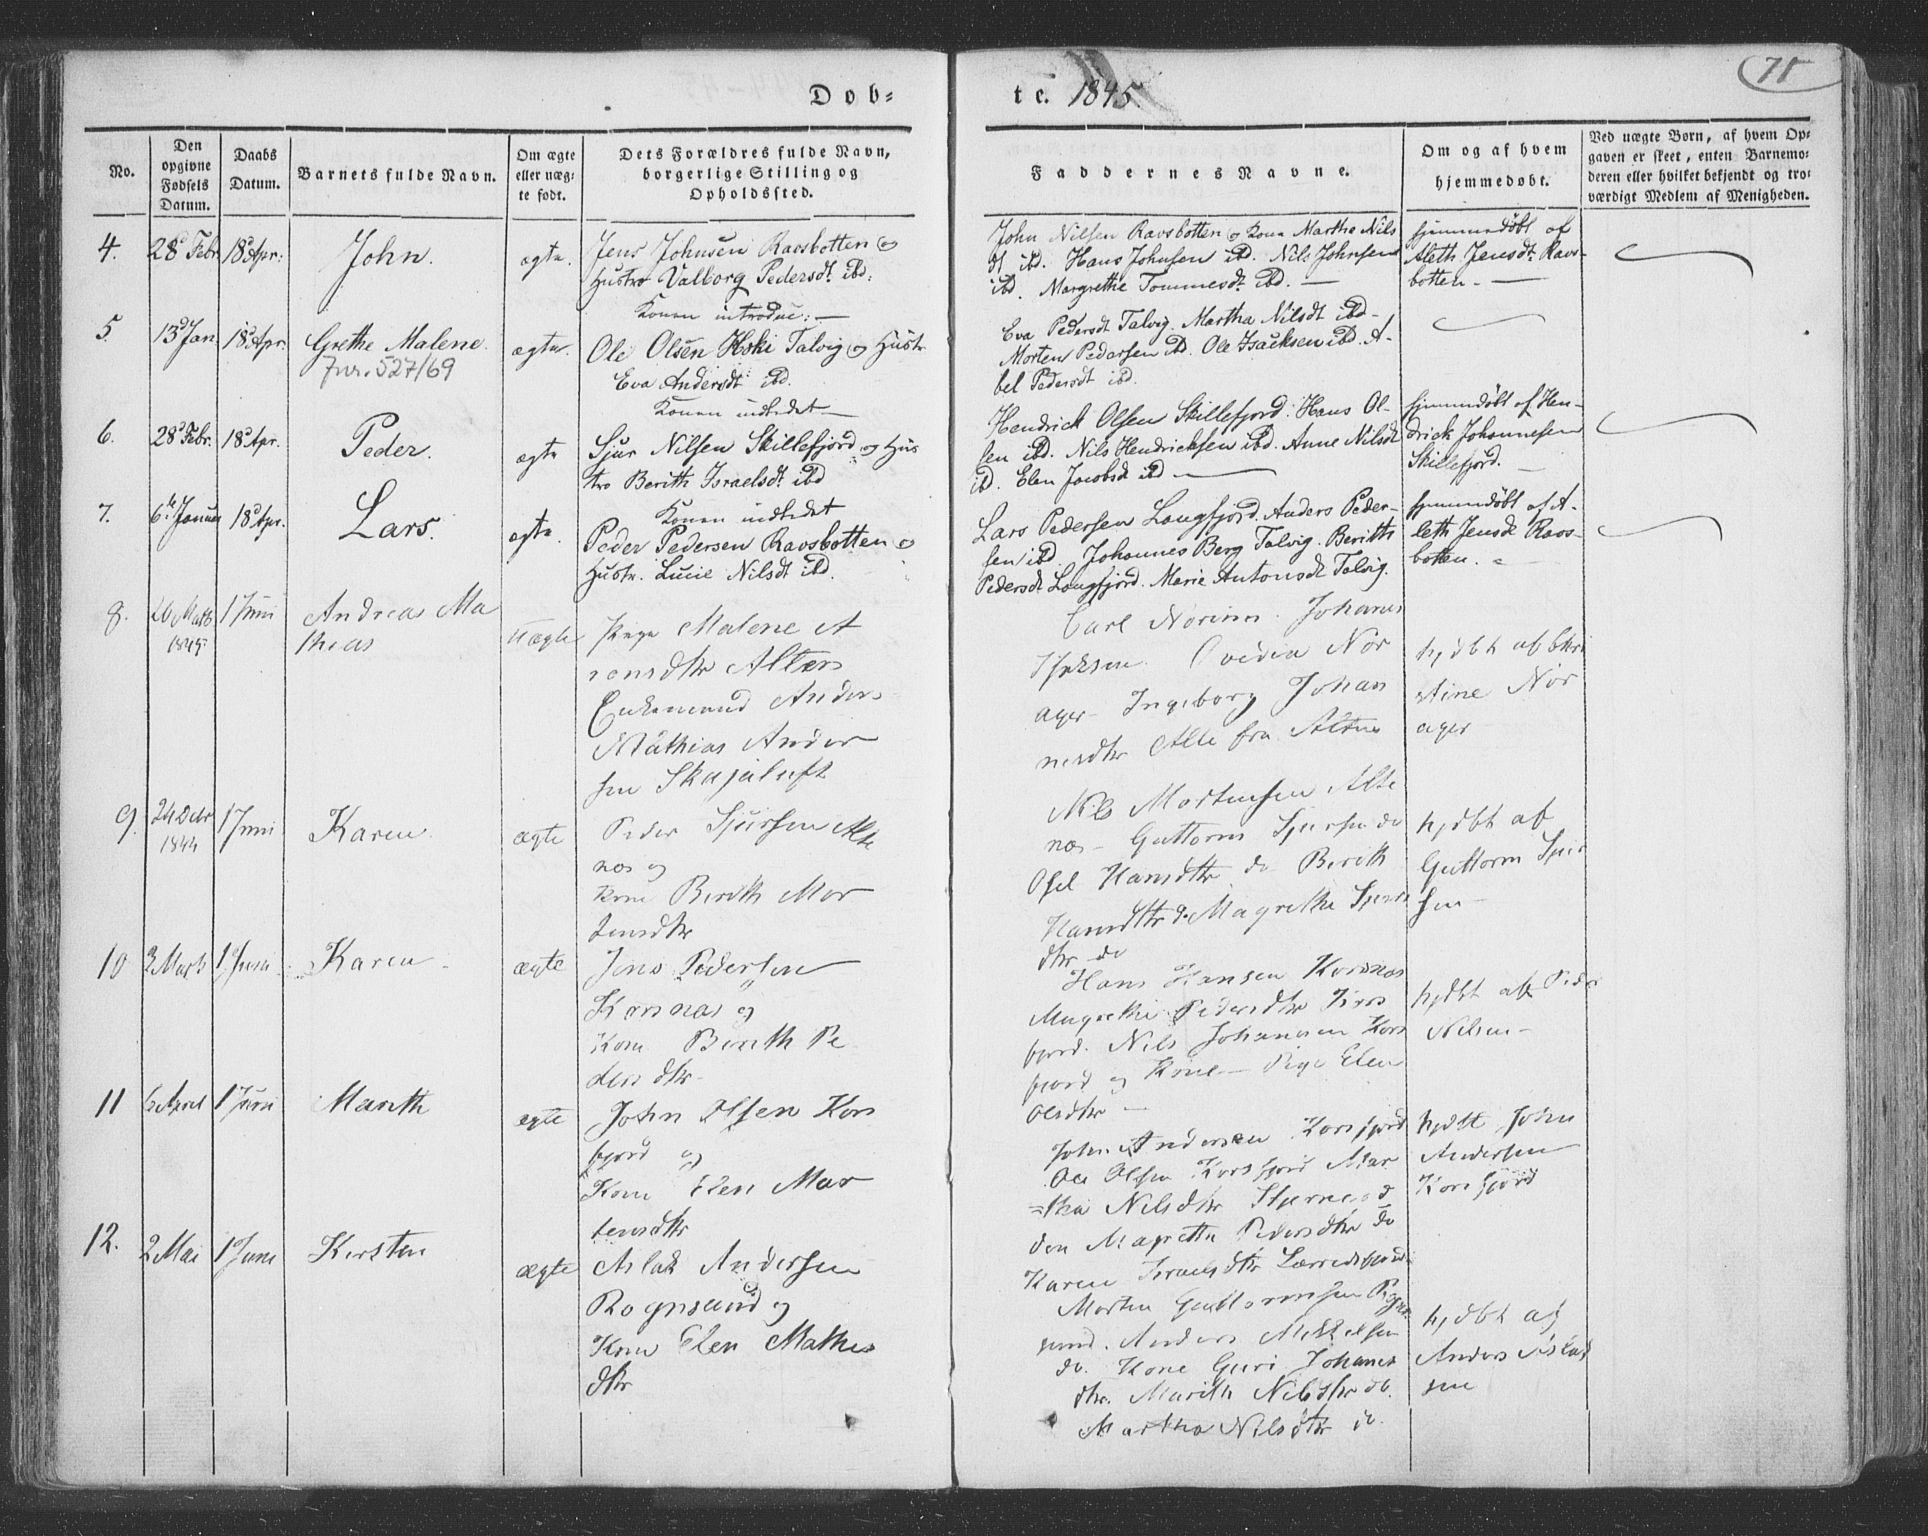 Dob-
te. 1845.
71
No.
Den opgivne Fødsels Datum.
Daabs Datum.
Barnets fulde Navn.
Om ægte eller uægte født.
Dets Forældres fulde Navn, borgerlige Stilling og Opholdssted.
Faddernes Navne.
Om og af hvem hjemmedøbt.
Ved uægte Børn, af hvem Opgaven er skeet, enten Barnemoderen eller hvilket bekjendt og troværdigt Medlem af Menigheden.
4. 28 Febr. 18 Apr: John. ægte.
Jens Johnsen Ravsbotten og
Hustro Valborg Pedersdt. ibd:
Konen introduc: —
John Nilsen Ravsbotten og Kone Martha Nils
dt ibd. Hans Johnsen ibd. Nils Johnsen
ibd. Margrethe Tommesdt. ibd. —
hjemmedøbt af
Aleth Jensdt. Ravs-
botten. —
5. 13 Jan 18 Apr. Grethe Malene. ægte.
Jnr. 527/69
Ole Olsen Talvig og Hustr.
Eva Andersdt ibd.
Konen indledet —
Eva Pedersdt Talvig. Martha Nilsdt ibd-
Morten Pedersen ibd. Ole Isacksen ibd. A-
bel Pedersdt ibd.
6. 28 Febr. 18 Apr. Peder. ægte
Sjur Nilsen Skillefjord og Hus
tro Berith Israelsdt. ibd
Konen indledet
Hendrick Olsen Skillefjord. Hans Ol-
sen ibd. Nils Hendricksen ibd. Anne Nilsdt
ibd. Elen Jacobsdt ibd —
hjemmedøbt af Hen-
drick Johannesen
Skillefjord. —
7. 6te Januar 18 Apr. Lars. ægte.
Peder Pedersen Ravsbotten og
Hustr. Lucie Nilsdt ibd.
Lars Pedersen Langfjord. Anders Peder-
sen ibd. Johannes Berg Talvig. Berith
Pedersdt Langfjord. Marie Antonsdt Talvig.
hjemmedøbt af A-
leth Jensdt Ravs-
botten.
8. 20 1845 1 Juni Andreas Ma
thias
uægte
Pige Malene A
rensdtr Alten
Enkemand Anders
Mathias Ander
sen Skajaluft
Carl Norum. Johanes
Isaksen. Ovedia Nor
ager- Ingeborg Johan
nesdtr Alle fra Altnes
hjdbt af Chri
stine Nor
ager
9. 24 Debr 1844 1 Juni Karen. ægte
Peder Sjursen Alte
næs og
Kone Berith Mor
tensdtr
Nils Mortensen Alte
næs- Guttorm Sjursen do
Hansdtr do Berith
Hansdtr do Magrethe Sjurs
dtr do
hjdbt af
Guttorm Sjur
sen-
10 3 Marts 1 Juni Karen - ægte
Jens Pedersen
Korsnæs og
Kone Berith Pe
dersdtr-
Hans Hansen Korsnæs
Magrethe Pedersdtr Kors
fjord. Nils Johansen Kors
fjord og Kone - Pige Elen
Olsdtr —
hjdbt af Peder
Nilsen-
11 6 April 1 Juni Marith ægte
John Olsen Kors
fjord og
Kone Elen Mor
tensdtr
John Andersen Korsfjord
Ole Olsen Korsfjord Mar
tha Nilsdtr
den Magretha Pedersdtr do
Karen Israelsdtr
hjdbt John
Andersen
Korsfjord
12. 2 Mai 1 Juni Kirsten ægte
Aslak Andersen
Rognsund og
Kone Elen Mathis
dtr
Morten Guttormsen Rogn
sund. Anders Mikkelsen
do. Kone Guri Johanes
dtr. Marith Nilsdtr do.
Martha Nilsdtr do.
hjdbt af
Anders Aslak
sen